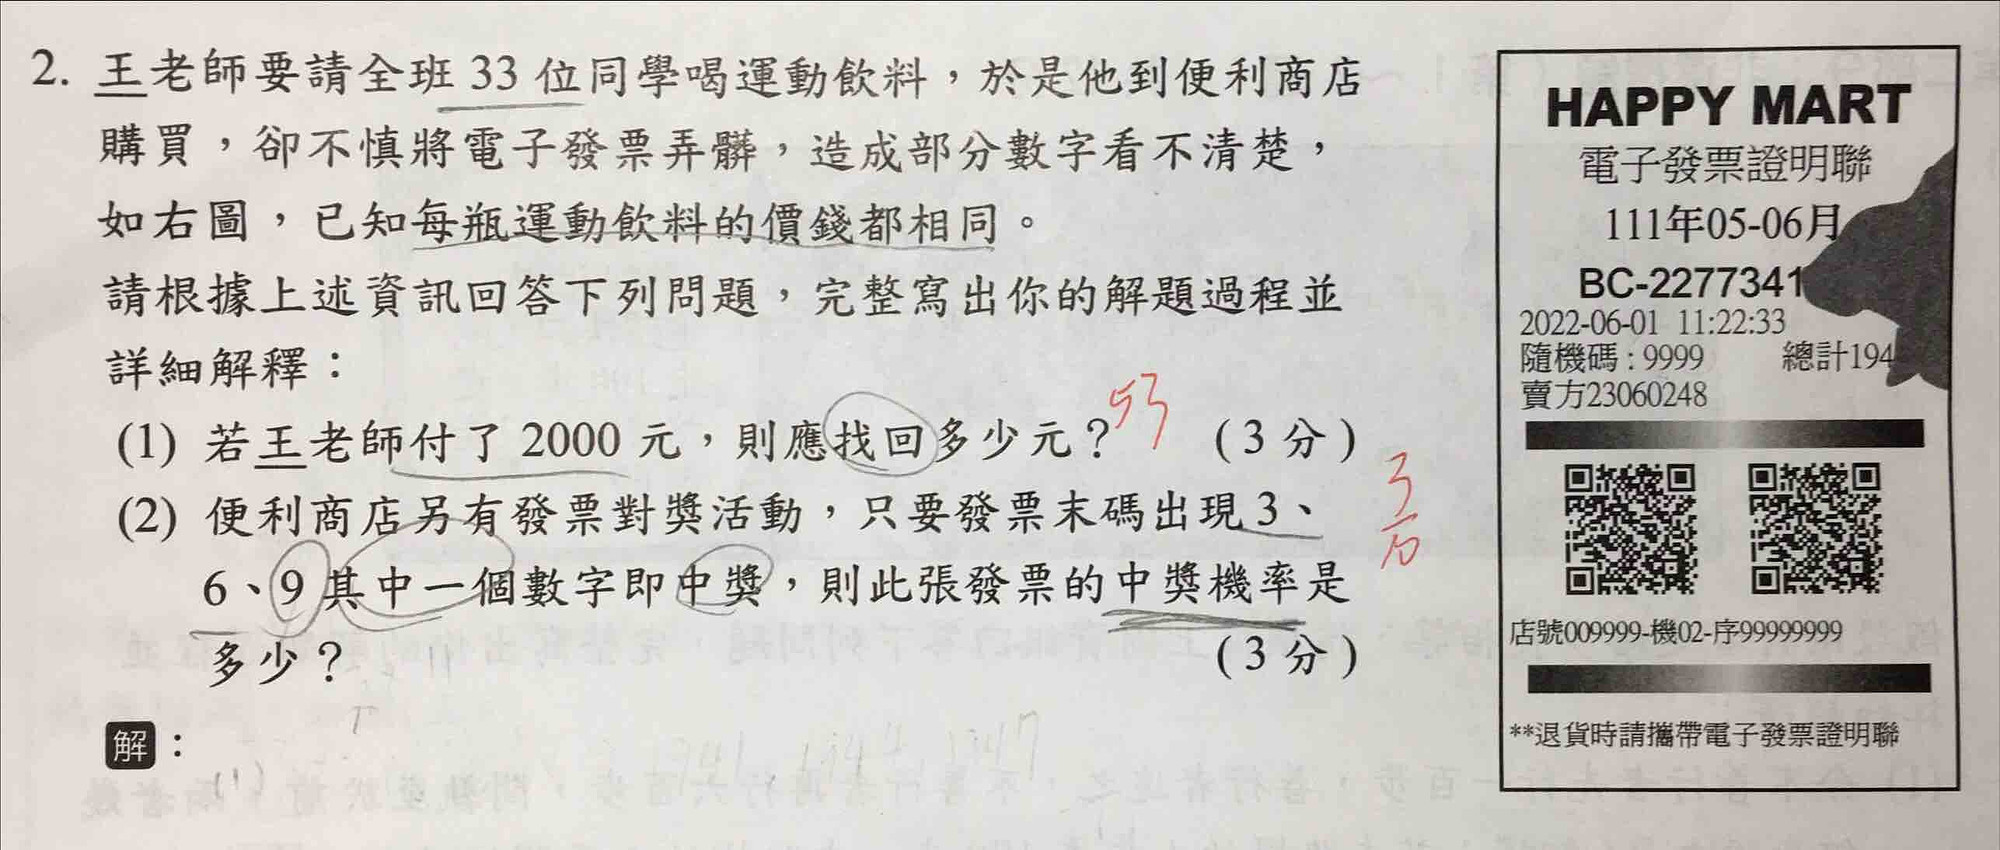 2. 王老師要請全班 33 位同學喝運動飲料，於是他到便利商店
購買，卻不慎將電子發票弄髒，造成部分數字看不清楚，
如右圖，已知每瓶運動飲料的價錢都相同。
請根據上述資訊回答下列問題，完整寫出你的解題過程並
詳細解釋：
(1) 若王老師付了 2000 元，則應找回多少元？ 53 （3 分）
(2) 便利商店另有發票對獎活動，只要發票末碼出現 3、
6、9 其中一個數字即中獎，則此張發票的中獎機率是
多少？ （3 分）
3/10
解：
1941, 1944, 1947
HAPPY MART
電子發票證明聯
111年05-06月
BC-2277341
2022-06-01 11:22:33
隨機碼 : 9999 總計194
賣方23060248
店號009999-機02-序99999999
**退貨時請攜帶電子發票證明聯